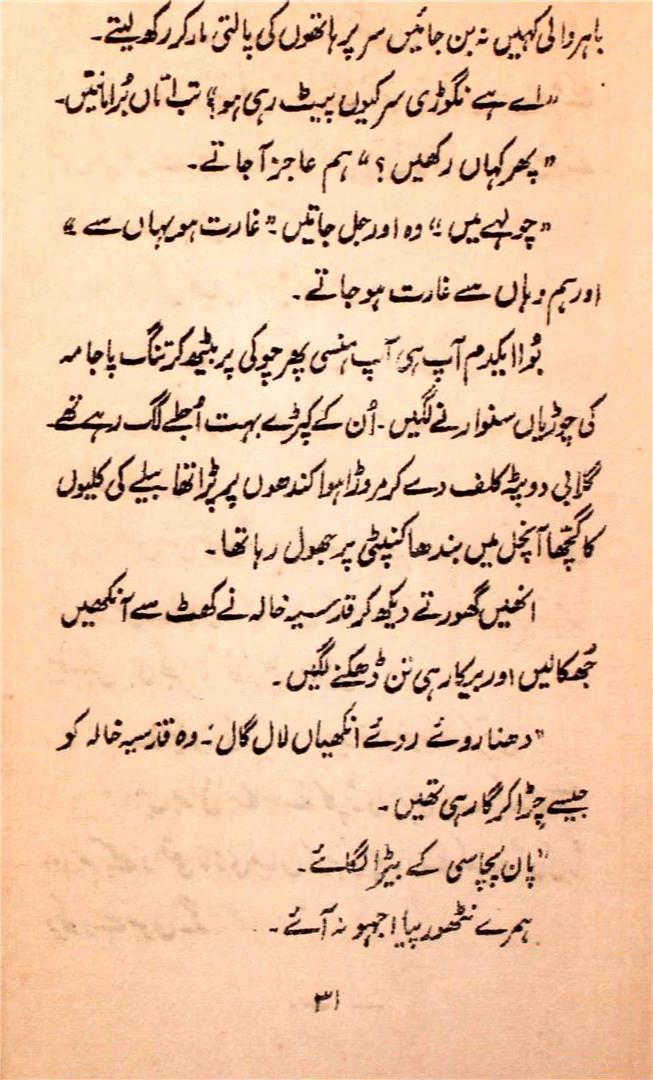 باہر والی کہیں نہ بن جائیں سر پر ہاتھوں کی پالتی مار کر رکھ لیتے۔
"اے ہے نگوڑی سر کیوں پیٹ رہی ہو؟" تب اتاں بُرا مانتیں۔
"پھر کہاں رکھیں؟" ہم عاجز آ جاتے۔
"چولہے میں۔" وہ اور جل جاتیں۔ "غارت ہو یہاں سے"
اور ہم وہاں سے غارت ہو جاتے۔
بُوا ایکدم آپ ہی آپ ہنسی پھر چوکی پر بیٹھ کر تنگ پاجامہ
کی چوڑیاں سنوارنے لگیں۔ اُن کے کپڑے بہت اُجلے لگ رہے تھے۔
گلابی دوپٹہ کلف دے کر مروڑا ہوا کندھوں پر پڑا تھا بیلے کی کلیوں
کا گچھا آنچل میں بندھا کنپٹی پر جھول رہا تھا۔
انھیں گھورتے دیکھ کر قدسیہ خالہ نے کھٹ سے آنکھیں
جُھکا لیں اور بریکار ہی تن ڈھکنے لگیں۔
"دھنا روئے روئے انکھیاں لال گال۔" وہ قدسیہ خالہ کو
جیسے چِڑا کر گا رہی تھیں۔
"پان پچاسی کے بیڑا لگائے۔
ہمرے نٹھور پیا اجہو نہ آئے۔
۳۱